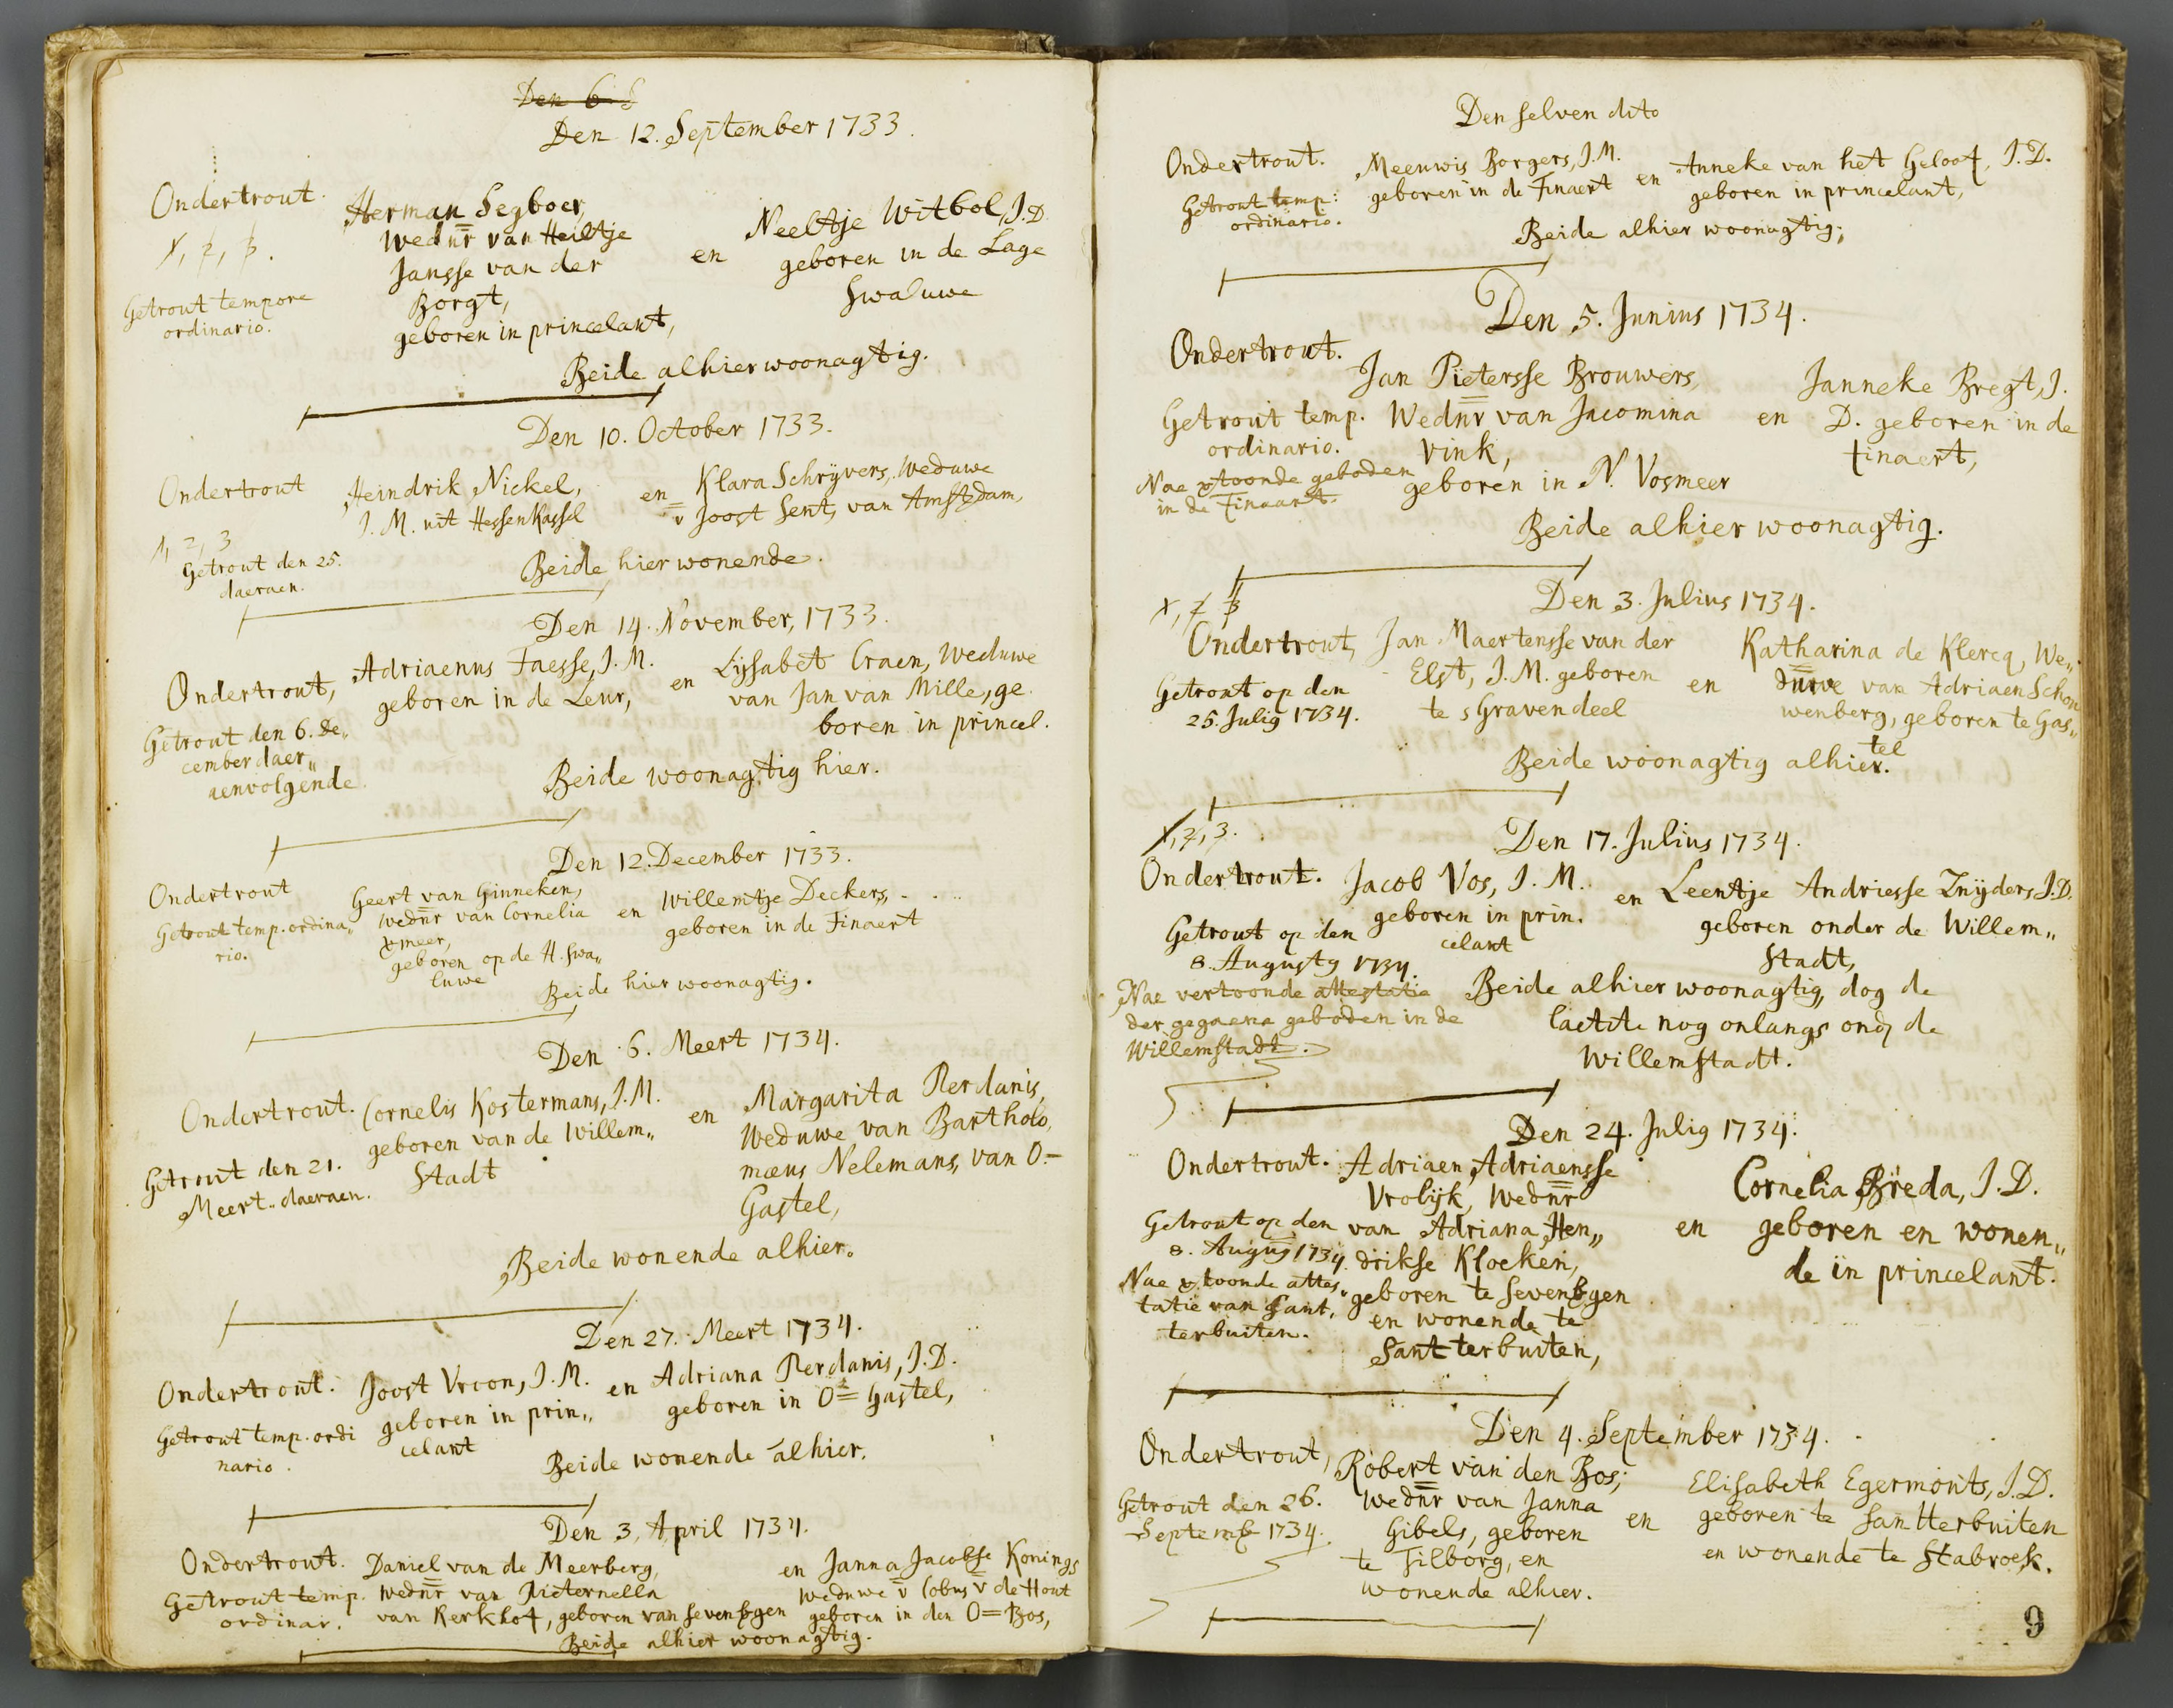 Den 6 S
Den 12. September 1733.
Ondertrout. Herman Segboer, en Neeltje Witbol, J.D.
1, 2, 3. Wednr van Heiltje geboren in de Lage
Jansse van der Swaluwe
Getrout tempore Borgt,
ordinario. geboren in princelant,
Beide alhier woonagtig.
Den 10. October 1733.
Ondertrout Heindrik Nickel, en Klara Schrijvers, Weduwe
J. M. uit Hessenkassel v Joost Sent, van Amstdam,
1, 2, 3
Getrout den 25. Beide hier wonende.
daeraen.
Den 14. November, 1733.
Ondertrout, Adriaenus Faesse, J. M. en Lijsabet Craen, Weduwe
geboren in de Leur, van Jan van Mille, ge
Getrout den 6. De„ boren in princel.
cember daer„
aenvolgende. Beide woonagtig hier.
Den 12. December 1733.
Ondertrout Geert van Ginneken, en Willemtje Deckers,
Getrout temp. ordina„ wednr van Cornelia geboren in de Finaert
rio. vmeer,
geboren op de H. Swa„
luwe
Beide hier woonagtig.
Den 6. Meert 1734.
Ondertrout. Cornelis Kostermans, J. M. en Margarita Perdanis,
geboren van de Willem„ Weduwe van Bartholo,
Getrout den 21. Stadt mæus Nelemans, van O.=
Meert daeraen. Gastel,
Beide wonende alhier.
Den 27. Meert 1734.
Ondertrout. Joost Vroon, J. M. en Adriana Perdanis, J.D.
Getrout temp. ordi geboren in prin„ geboren in O= Gastel,
nario. celant
Beide wonende alhier.
Den 3. April 1734.
Ondertrout. Daniel van de Meerberg, en Janna Jacobse Konings
Getrout temp. wednr van Pieternella Weduwe v Cobus v de Hout
ordinar. van Kerkhof, geboren van Sevenbgen geboren in den O= Bos,
Beide alhier woonagtig.
Den selven dito
Ondertrout. Meeuwis Borgers, J. M. en Anneke van het Geloof, J. D.
Getrout temp: geboren in de Finaert geboren in princelant,
ordinario.
Beide alhier woonagtig;
Den 5. Junius 1734.
Ondertrout. Jan Pietersse Brouwers, en Janneke Bregt, J.
Getrout temp. Wednr van Jacomina D. geboren in de
ordinario. Vink, finaert,
Nae vtoonde geboden geboren in N. Vosmeer
in de Finaart.
Beide alhier woonagtig.
1, 2, 3 Den 3. Julius 1734.
Ondertrout, Jan Maertensse van der en Katharina de Klercq, We„
Getrout op den Elst, J. M. geboren duwe van Adriaen Schou
25. Julig 1734. te sGravendeel wenberg, geboren te Gas„
tel
Beide woonagtig alhier.
1, 2, 3. Den 17. Julius 1734.
Ondertrout. Jacob Vos, J. M. en Leentje Andriesse Znijders, J.D.
geboren in prin. geboren onder de Willem„
Getrout op den celant Stadt,
8. Augusty 1734.
Nae vertoonde attestatie Beide alhier woonagtig, dog de
der gegaene geboden in de laetste nog onlangs ond de
Willemstadt. Willemstadt.
Den 24. Julig 1734.
Ondertrout. Adriaen Adriaensse en Cornelia Breda, J. D.
Vrolijk, Wednr geboren en wonen„
Getrout op den van Adriana Hen„ de in princelant.
8. Augus 1734. drikse Kloeken,
Nae vtoonde attes„ geboren te Sevenbgen
tatie van Sant, en wonende te
terbuiten. Santterbuiten,
Den 4. September 1734.
Ondertrout, Robert van den Bos; en Elisabeth Egermonts, J. D.
Getrout den 26. wednr van Janna geboren te Santterbuiten
Septemb 1734. Gibels, geboren en wonende te Stabroek.
te Tilborg, en
wonende alhier.
9